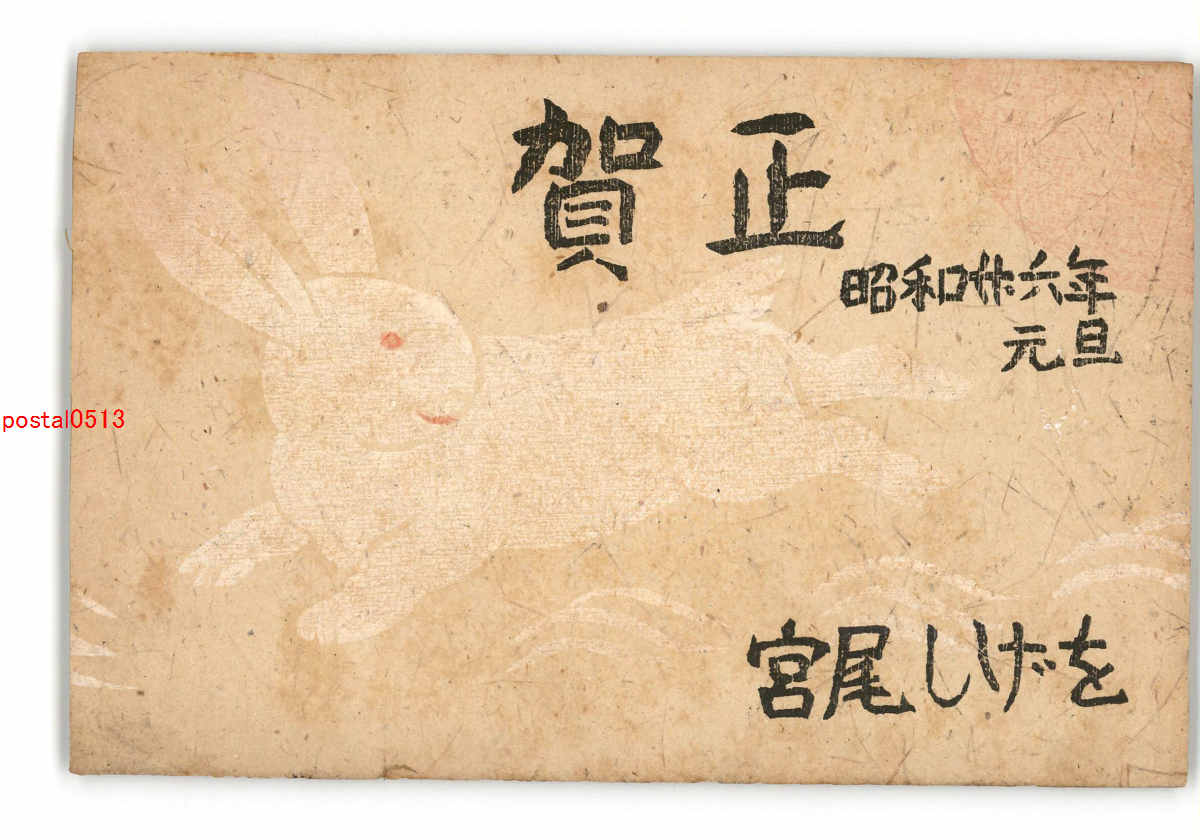 賀正
昭和廿六年
元旦
宮尾しげを
postal0513